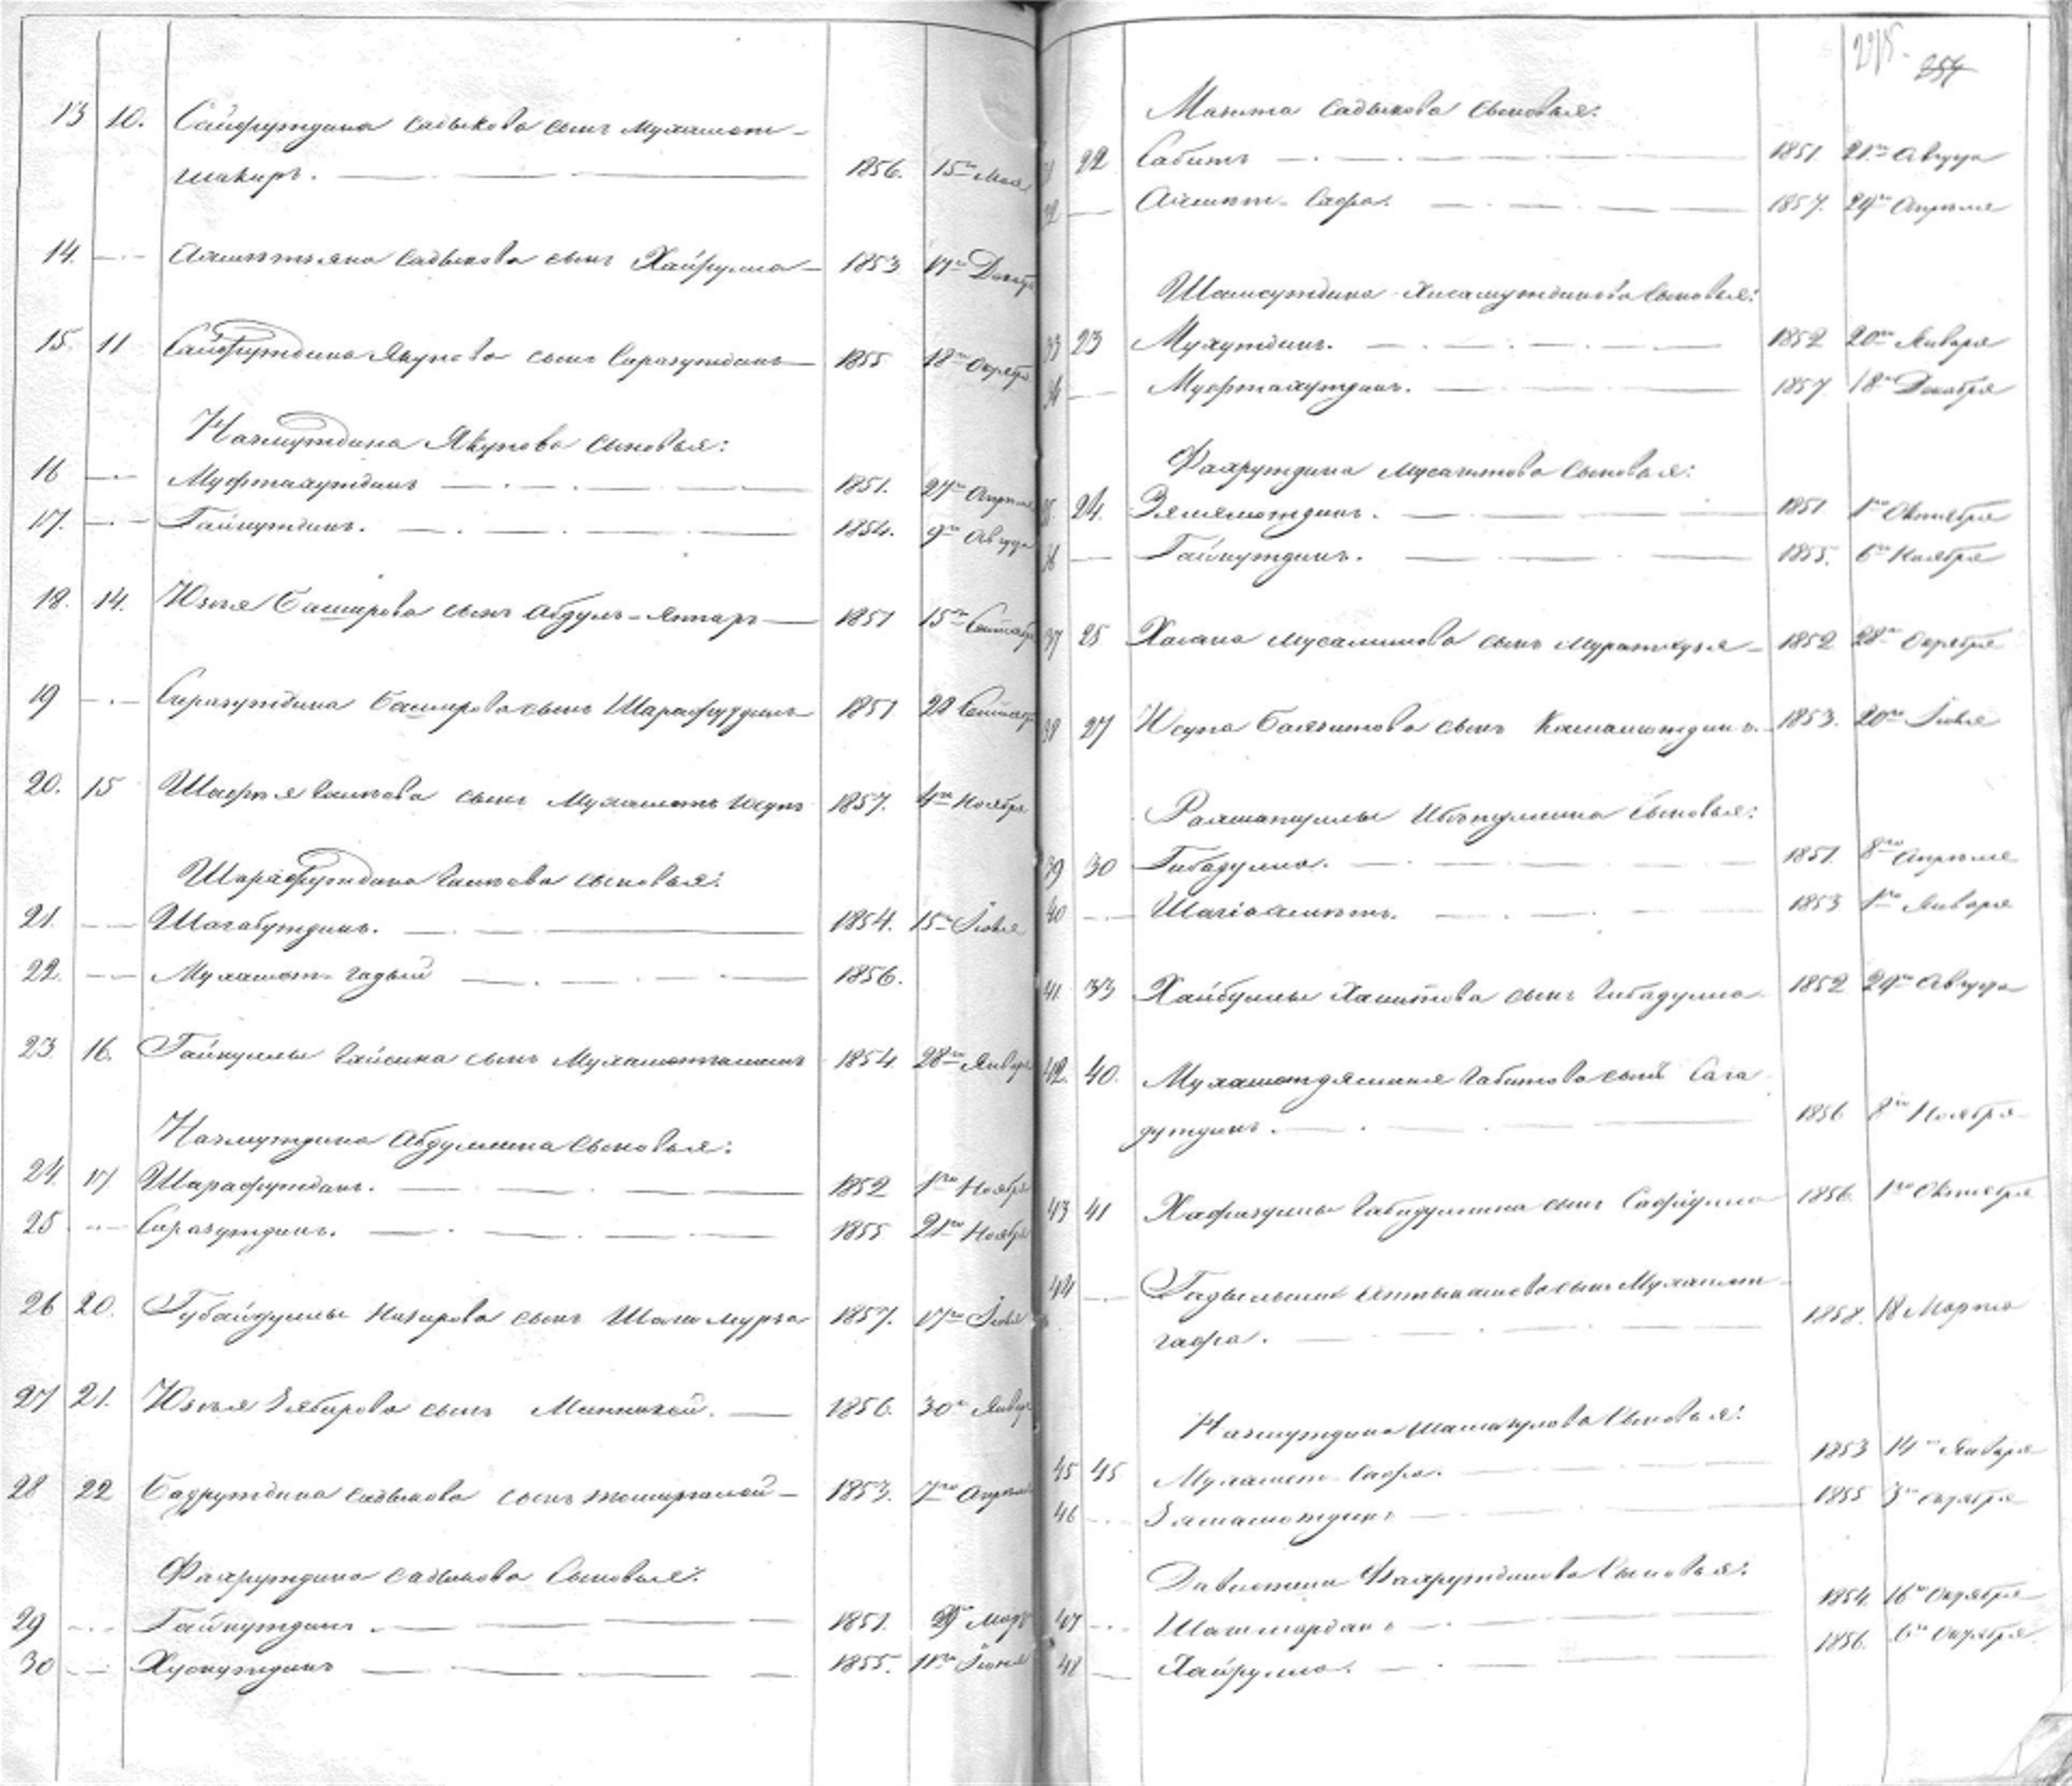 13 10. Сайфутдина Садыкова сынъ Мухамет-
шакиръ. 1856. 15го Мая
14. Ахметьяна Садыкова сынъ Хайрулла 1853 17го Декаб
15. 11 Сайфутдина Якупова сынъ Сиразутдинъ 1855 18го Октяб
Назмутдина Якупова сыновья:
16 Муфтахутдинъ 1851. 27го Апреля
17. Гайнутдинъ. 1854. 9го Авгус
18. 14. Юнея Баширова сынъ Абдулъ-Яппаръ 1851 15го Сентябр
19 Сиразутдина Баширова сынъ Шарафутдинъ 1851 22 Сентяб
20. 15 Шафея Гаитова сынъ Мухаметъ Юсупъ 1857. 4го Ноябр
Шарафутдина Гаитова сыновья:
21. Шагабутдинъ. 1854. 15го Iюля
22. Мухамет-гадый 1856.
23 16. Гайнуллы Гайсина сынъ 1854 28го Январ
Назмутдина Абдуллина сыновья:
24. 17 Шарафутдинъ. 1852 1го Ноябр
25 Сиразутдинъ. 1855 21го Ноябр
26 20. Губайдуллы Назирова сынъ Шаги мурза 1857. 17го Iюля
27 21. Юнея Зябирова сынъ Миннигой. 1856. 30го Январ
28 22 Бадрутдина Садыкова сынъ 1853. 7го Апреля
Фахрутдина Садыкова сыновья:
29 Гайнутдинъ. 1851. 29 Март
30 Хуснутдинъ 1855. 11го Iюня
215. 254
Мазита Садыкова сыновья:
31 22 Сабитъ 1851 21го Авгус
32 Ахмет-Сафа. 1857. 29го Апреля
Шамсутдина Хисамутдинова сыновья:
33 23 Мухутдинъ. 1852 20го Января
34 Муфтахутдинъ. 1857 18го Декабря
Фахрутдина Мусагитова сыновья:
35 24. Зялялетдинъ. 1851 1го Октября
36 Гайнутдинъ. 1855. 6го Ноября
37 25 Хасана Мусалимова сынъ 1852 28го Октября
38 27 Юсупа Баязитова сынъ Камалетдинъ. 1853. 20го Iюля
Рахманкуллы Ибэтуллина сыновья:
39 30 Гибадулла. 1851. 8го Апреля
40 Шагiахметъ. 1853 1го Января
41 33 Хайбуллы Хамитова сынъ Гибадулла 1852 29го Авгус
42. 40. Мухаметдямина Габитова сынъ Сага
дутдинъ. 1856 8го Ноября
43 41 Хафизуллы Габидуллина сынъ Сафiулла 1856 1го Октября
44 сынъ Мухамет
гафа. 1858. 18 Марта
Назмутдина Шамагулова сыновья:
45 45 Мухамет-Сафа. 1853 14го Января
46 Замалетдинъ 1855 3го Октября
Давлетши Фахрутдинова сыновья:
47 Шагимарданъ 1854. 16го Октября
48 Хайрулла. 1856. 6го Октября